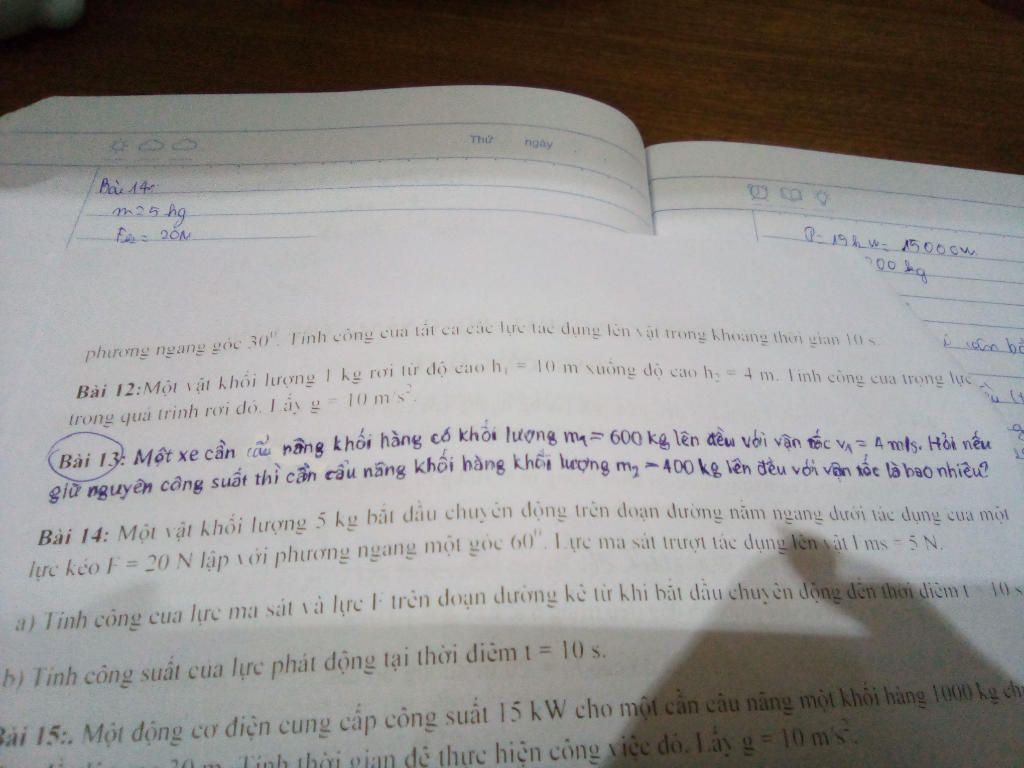 Thứ ngày
Bài 14:
m = 5 kg
= 20N
P = 15kW = 15000W
kg
phương ngang góc 30⁰. Tính công của tất cả các lực tác dụng lên vật trong khoảng thời gian 10 s.
Bài 12:Một vật khối lượng 1 kg rơi từ độ cao h₁ = 10 m xuống độ cao h₂ = 4 m. Tính công của trọng lực
trong quá trình rơi đó. Lấy g = 10 m/s².
Bài 13: Một xe cần cẩu nâng khối hàng có khối lượng m₁ = 600 kg lên đều với vận tốc v₁ = 4 m/s. Hỏi nếu
giữ nguyên công suất thì cần cẩu nâng khối hàng khối lượng m₂ = 400 kg lên đều với vận tốc là bao nhiêu?
Bài 14: Một vật khối lượng 5 kg bắt đầu chuyển động trên đoạn đường nằm ngang dưới tác dụng của một
lực kéo F = 20 N lập với phương ngang một góc 60⁰. Lực ma sát trượt tác dụng lên vật Fms = 5 N.
a) Tính công của lực ma sát và lực F trên đoạn đường kể từ khi bắt đầu chuyển động đến thời điểm t = 10 s
b) Tính công suất của lực phát động tại thời điểm t = 10 s.
Bài 15:. Một động cơ điện cung cấp công suất 15 kW cho một cần cẩu nâng một khối hàng 1000 kg
Tính thời gian để thực hiện công việc đó. Lấy g = 10 m/s².